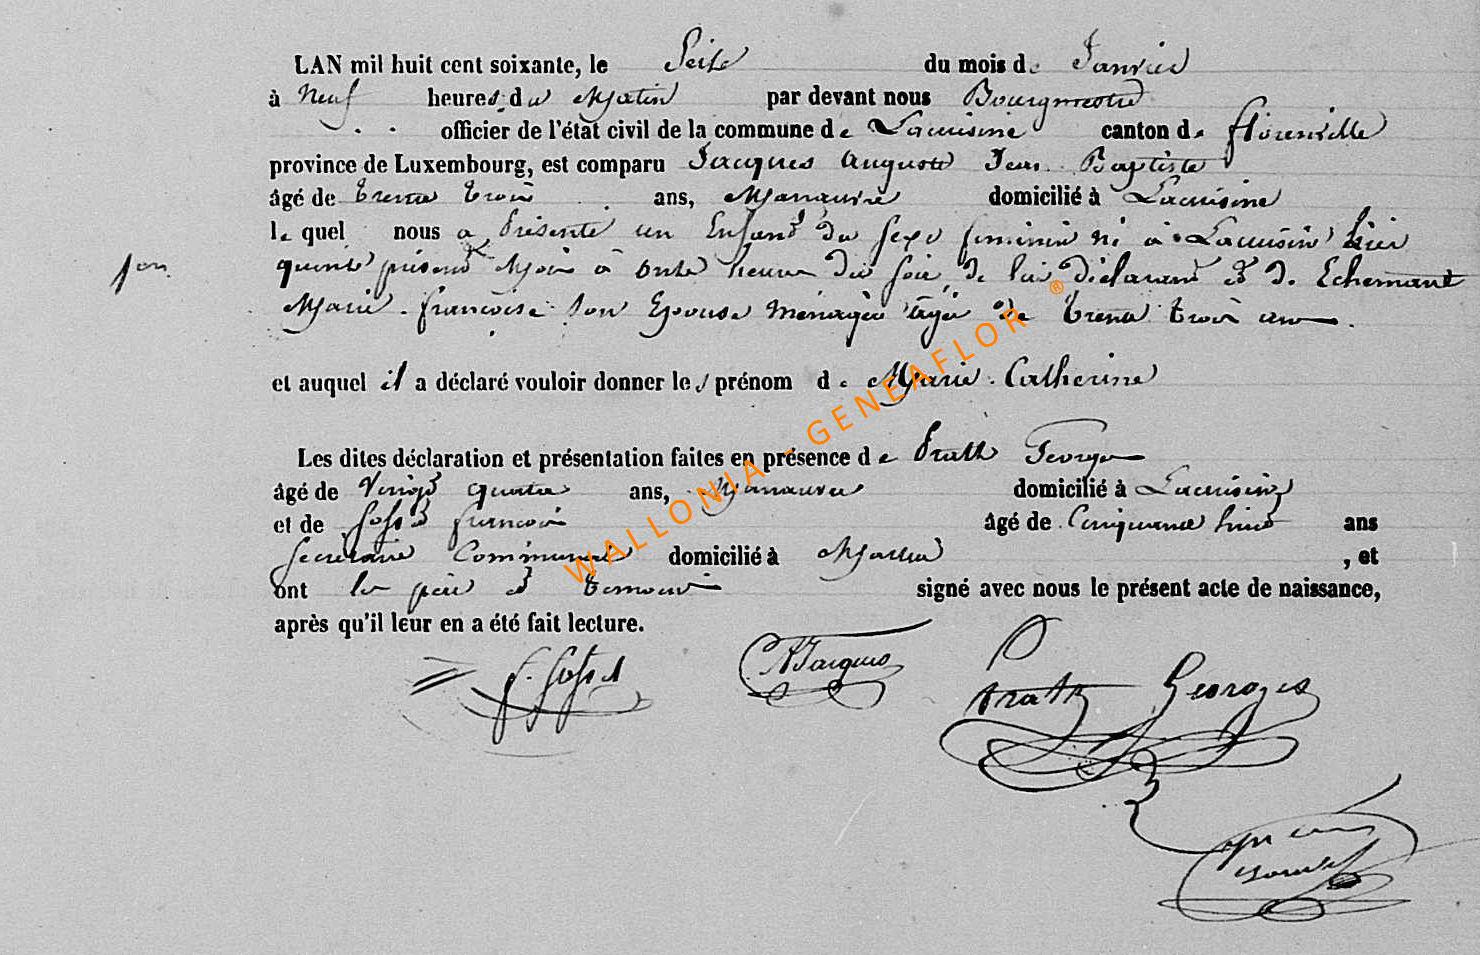 LAN mil huit cent soixante, le Seize du mois de Janvier
à Neuf heures du Matin par devant nous Bourgmestre
officier de l'état civil de la commune de Lacuisine canton de florenville
province de Luxembourg, est comparu Jacques Auguste Jean Baptiste
âgé de trente trois ans, Manœuvre domicilié à Lacuisine
le quel nous a présenté un Enfant du sexe feminin né à Lacuisine hier
quinze présent Mois à onze heures du soir, de lui déclarant et de Echement
Marie françoise son Epouse Ménagère âgée de trente trois ans.
et auquel il a déclaré vouloir donner les prénom de Marie Catherine
Les dites déclaration et présentation faites en présence de Prath George
âgé de Vingt quatre ans, Manœuvre domicilié à Lacuisine
et de françois âgé de Cinquante huit ans
Secrétaire Communal domicilié à , et
ont le père et temoins signé avec nous le présent acte de naissance,
après qu'il leur en a été fait lecture.
Jacques
Prath Georges
WALLONIA - GENEAFLOR ®